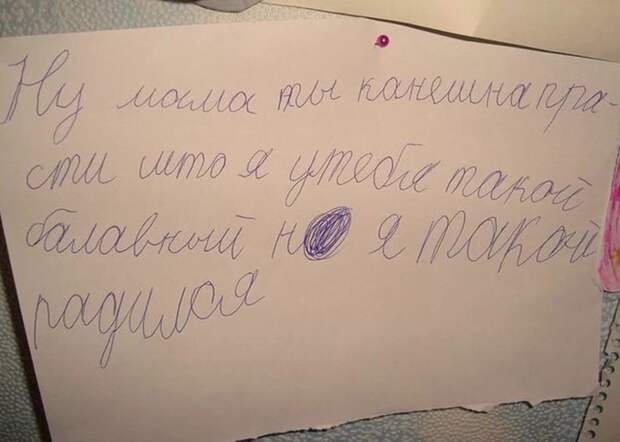 Ну мама ты канешна пра-
сти што я утебя такой
балавный н я такой
радился